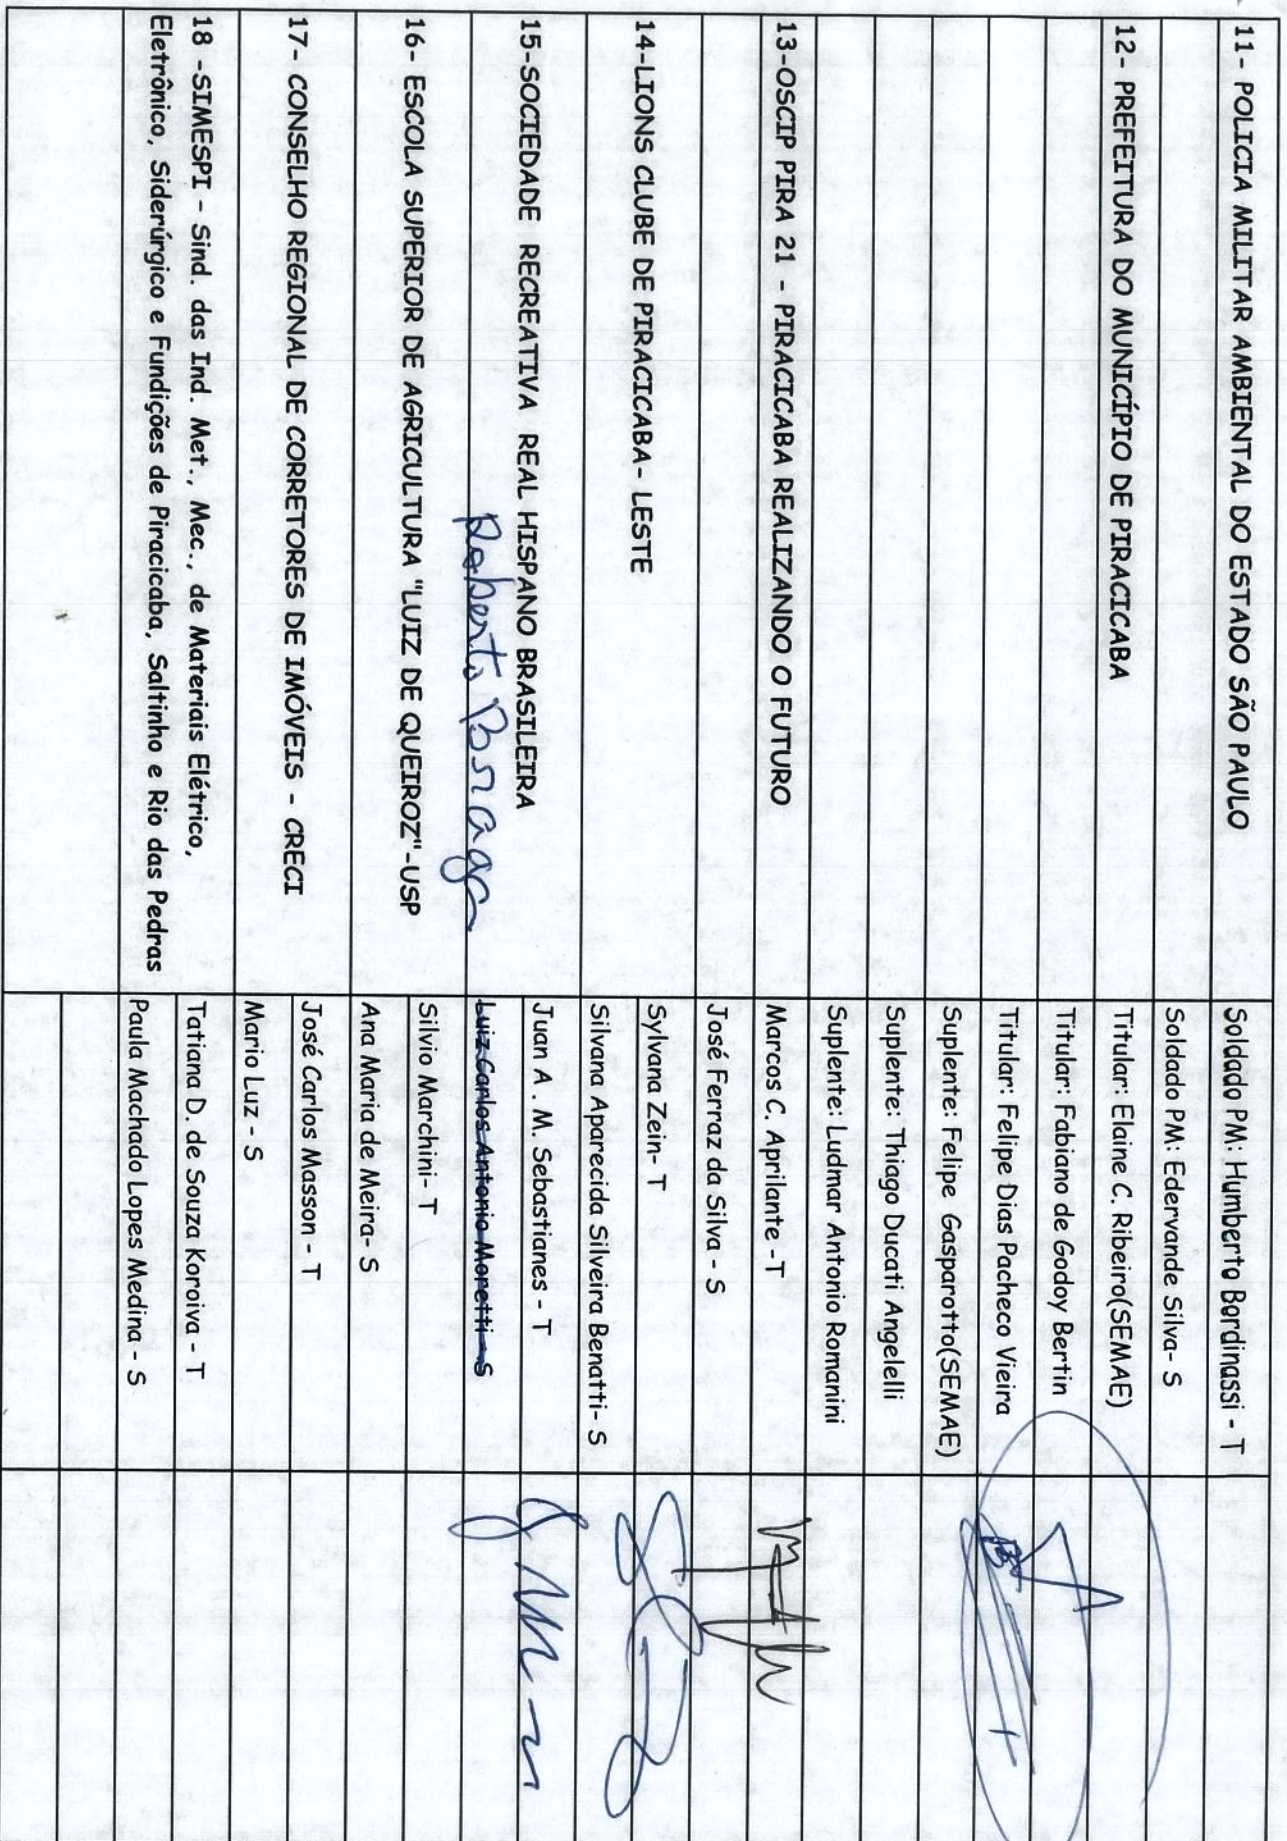 11- POLICIA MILITAR AMBIENTAL DO ESTADO SÃO PAULO
Soldado PM. Humberto Bordinassi - T
Soldado PM. Edervande Silva- S
12- PREFEITURA DO MUNICÍPIO DE PIRACICABA
Titular: Elaine C. Ribeiro(SEMAE)
Titular: Fabiano de Godoy Bertin
Titular: Felipe Dias Pacheco Vieira
Suplente: Felipe Gasparotto(SEMAE)
Suplente: Thiago Ducati Angelelli
Suplente: Ludmar Antonio Romanini
13-OSCIP PIRA 21 - PIRACICABA REALIZANDO O FUTURO
Marcos C. Aprilante -T
José Ferraz da Silva - S
14-LIONS CLUBE DE PIRACICABA- LESTE
Sylvana Zein- T
Silvana Aparecida Silveira Benatti- S
15-SOCIEDADE RECREATIVA REAL HISPANO BRASILEIRA
Juan A . M. Sebastianes - T
Roberto
Luiz Carlos Antonio Moretti -S
16- ESCOLA SUPERIOR DE AGRICULTURA "LUIZ DE QUEIROZ"-USP
Silvio Marchini- T
Ana Maria de Meira- S
17- CONSELHO REGIONAL DE CORRETORES DE IMÓVEIS - CRECI
José Carlos Masson - T
Mario Luz - S
18 -SIMESPI - Sind. das Ind. Met., Mec., de Materiais Elétrico,
Eletrônico, Siderúrgico e Fundições de Piracicaba, Saltinho e Rio das Pedras
Tatiana D. de Souza Koroiva - T
Paula Machado Lopes Medina - S